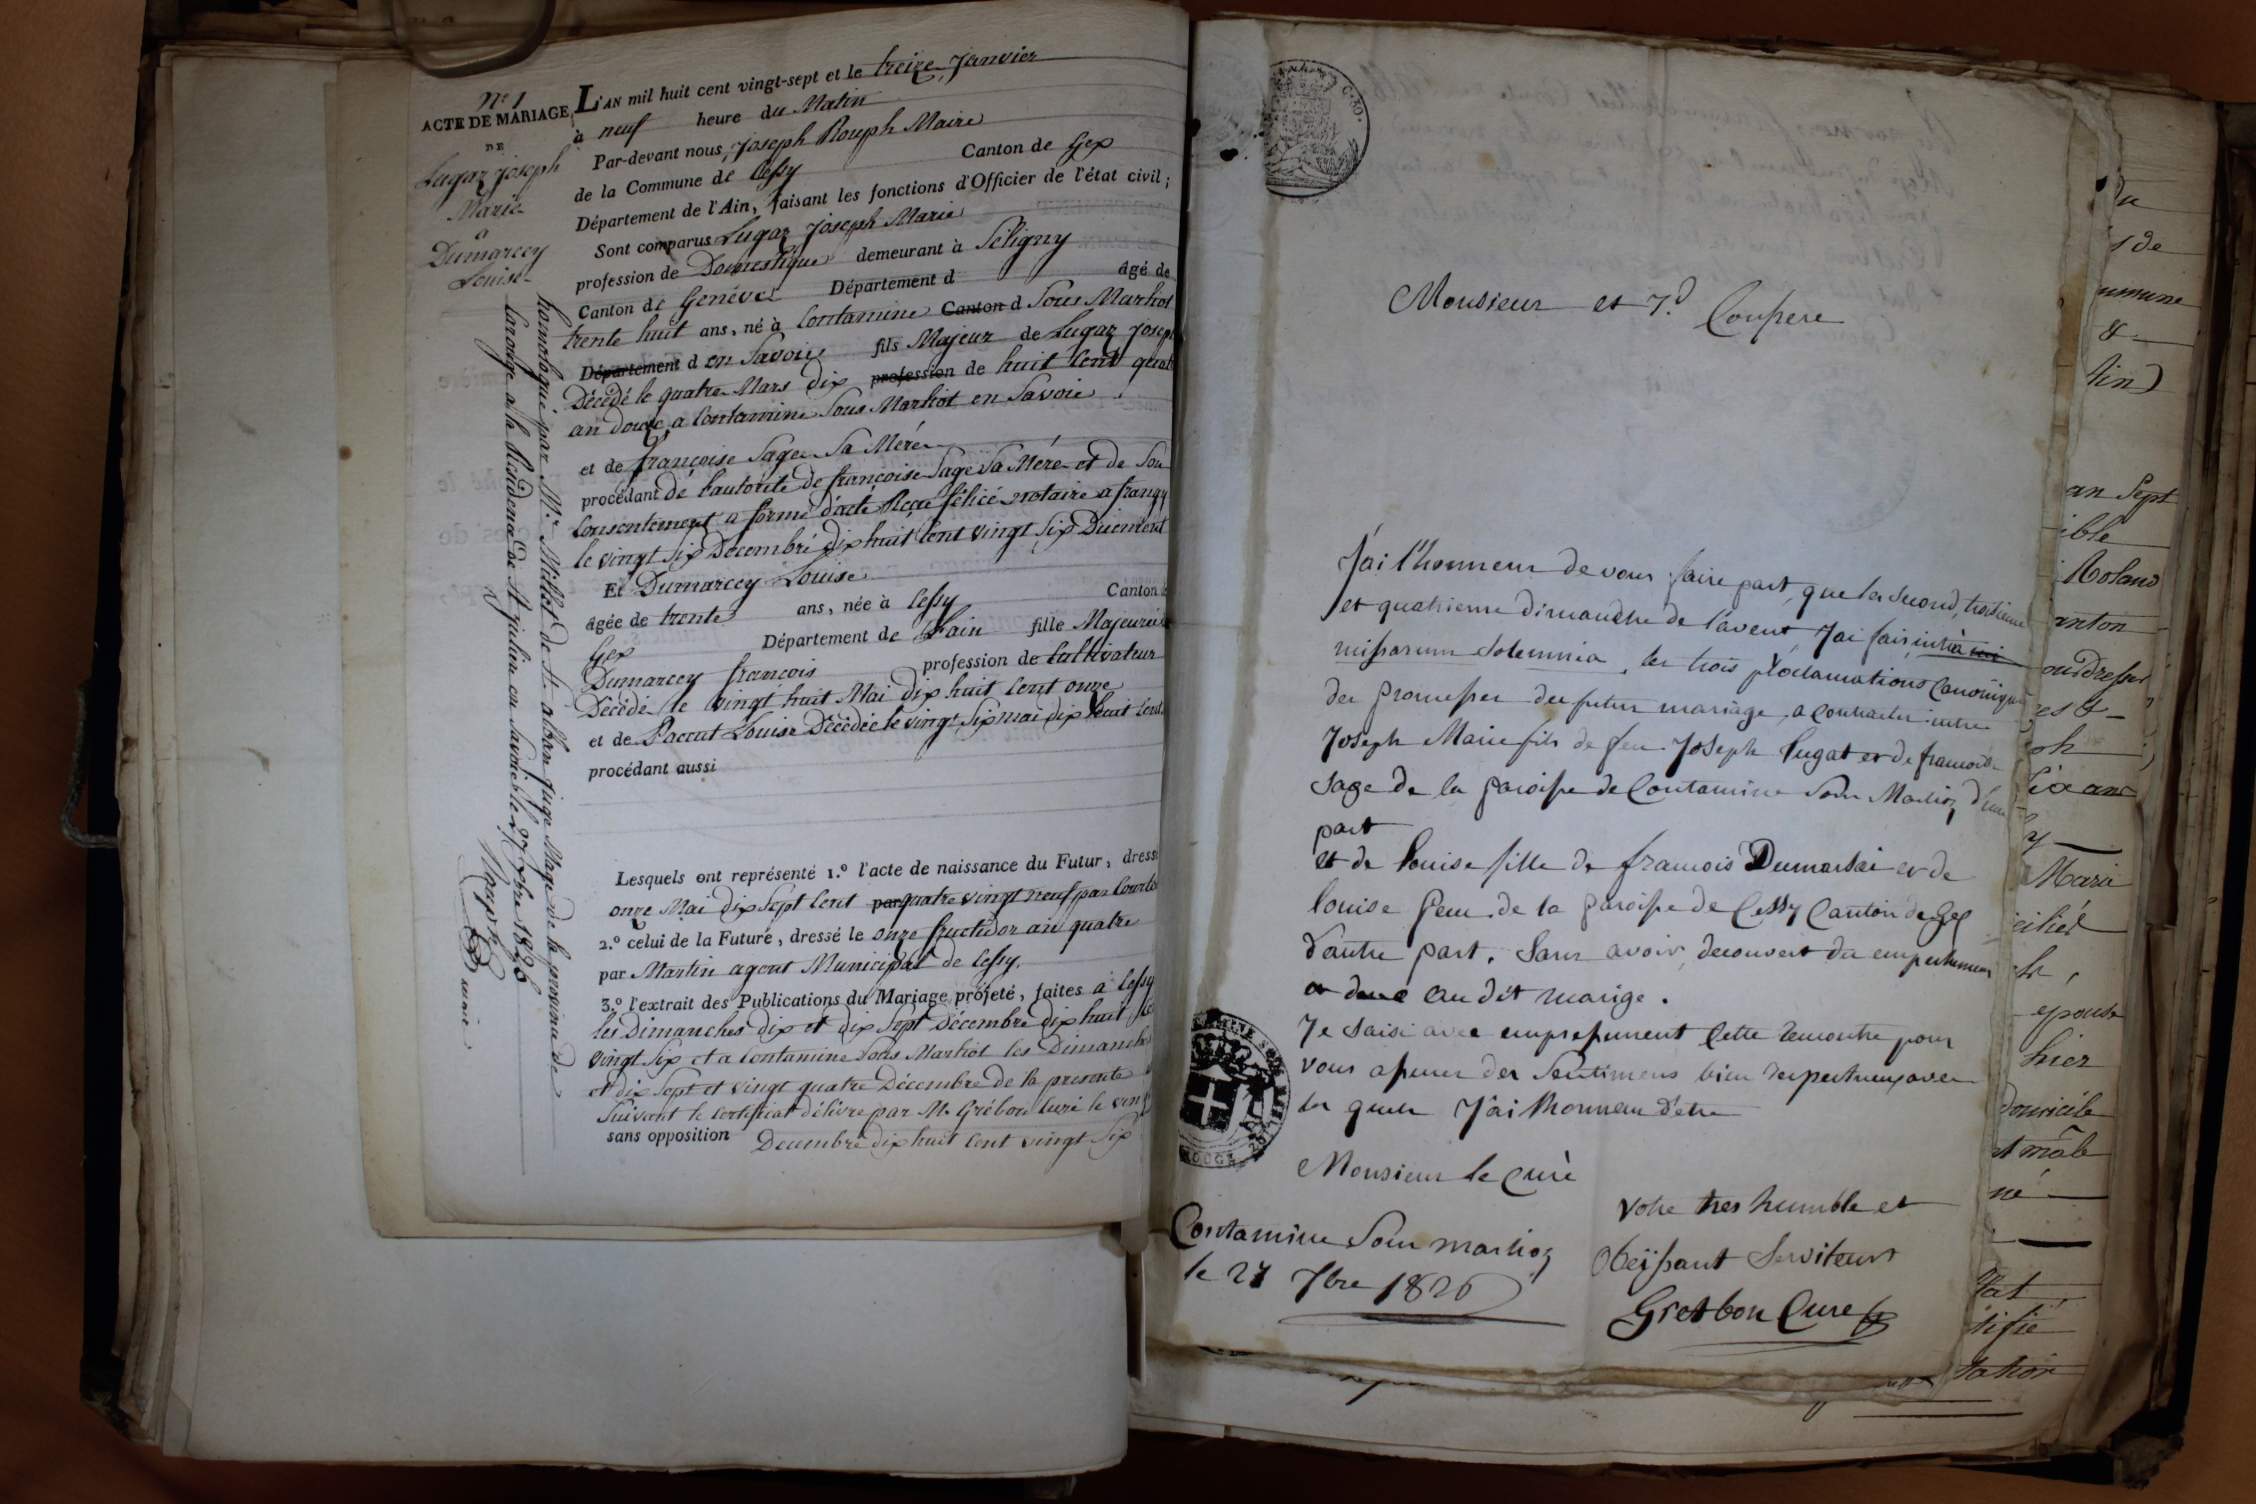 N.º 1
ACTE DE MARIAGE
DE
Lugaz joseph
Marie
a
Dumarcey
Louise
L'AN mil huit cent vingt-sept et le treize Janvier
à neuf heure du Matin
Par-devant nous, joseph Rouph Maire
de la Commune de Cessy Canton de Gex
Département de l'Ain, faisant les fonctions d'Officier de l'état civil;
Sont comparus Lugaz joseph Marie
profession de Domestique demeurant à Séligny
Canton de Genéve Département d âgé de
trente huit ans, né à Contamine Canton d Sous Marliot
Département d en Savoie fils Majeur de Lugaz joseph
Décédé le quatre Mars dix profession de huit Cent quat
an douze, a Contamine Sous Marliot en Savoie
et de françoise Sage Sa Mére
procédant de l'autorité de françoise Sage Sa Mére et de Son
Consentement a forme d'acte Reçu félicé notaire a frangy
le vingt Six Décembre dix huit Cent vingt Six Duement
homologué par M.r Millet de St. alban juge Mage de la province de
Carouge a la Residence de St julien en Savoie le 27 Xbre 1826
Et Dumarcey Louise
âgée de trente ans, née à Cessy Canton de
Gex Département de L'ain fille Majeure de
Dumarcey françois profession de Cultivateur
Décédé le vingt huit Mai dix huit Cent onze
et de Paccut Louise Décédée le vingt Six mai dix huit Cent
procédant aussi
Lesquels ont représenté 1.º l'acte de naissance du Futur, dressé
onze Mai dix Sept Cent par quatre vingt neuf par
2.º celui de la Future, dressé le onze fructidor an quatre
par Martin agent Municipal de Cessy.
3.º l'extrait des Publications du Mariage projeté, faites à Cessy
les Dimanches dix et dix Sept Décembre dix huit
vingt Six et a Contamine Sous Marliot les Dimanches
et dix Sept et vingt quatre Décembre de la presente
Suivant le certificat délivré par Mr Grébon Curé le vingt
sans opposition Decembre dix huit Cent vingt Six
Monsieur et Confrere
J'ai l'honneur de vous faire part, que les second, troisieme
et quatrieme dimanche de l'avent, J'ai fais, intrà
missarum solemnia, les trois proclamations Canoniques
des promesses du futur mariage, a contracter entre
Joseph Marie fils de feu Joseph lugat et de francoise
sage de la paroisse de Contamine Sous Marlioz d'une
part
et de louise fille de francois Dumarsai et de
louise Peccu de la paroisse de Cessy Canton de Gex
d'autre part. Sans avoir decouvert du empechement
au dit marige.
Je saisi avec empressement cette rencontre pour
vous assurer des Sentimens bien respectueux avec
les quels J'ai l'honneur d'etre
Monsieur le Curè
Contamine Sous marlioz
le 27 Xbre 1826
votre tres humble et
Obeissant Serviteur
Gretbon Cure
s de
an Sept
ible
Roland
anton
Six ans
Mari
épouse
hier
Domicile
né
tifié
tation